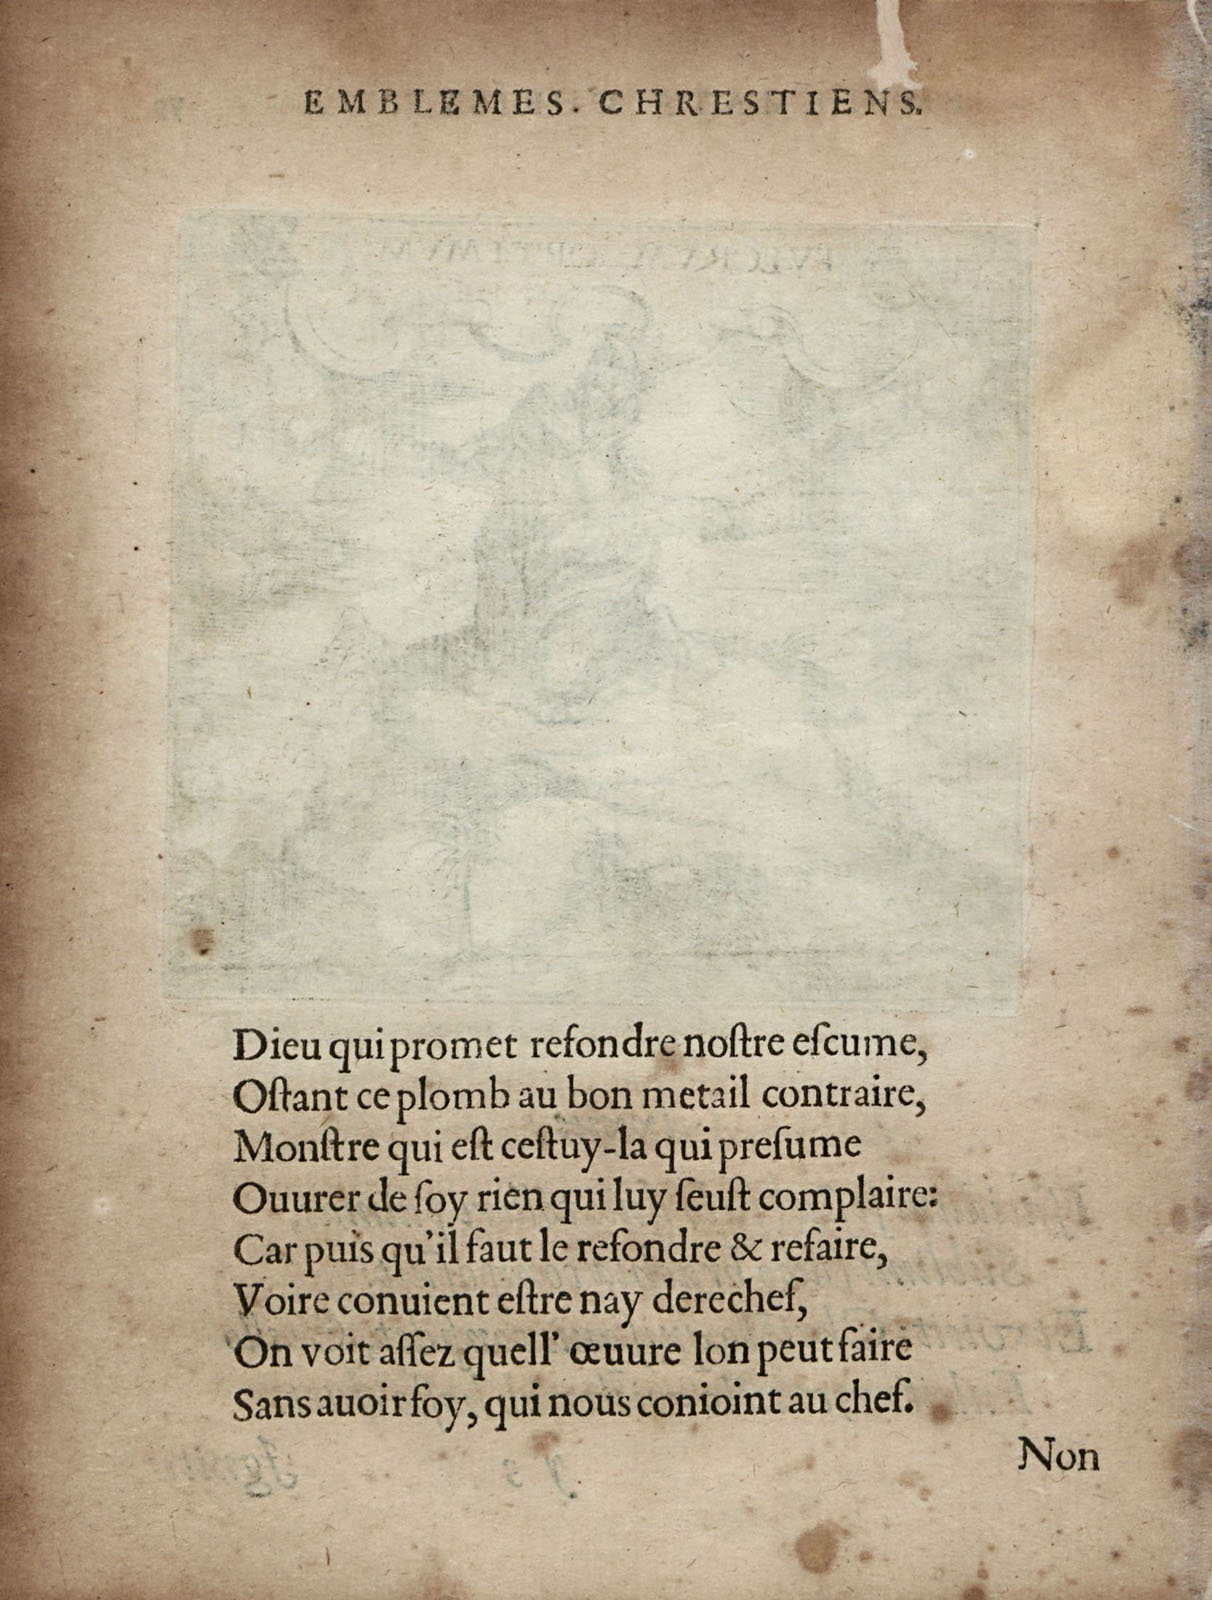 EMBLEMES. CHRESTIENS.
Dieu qui promet refondre noſtre eſcume,
Oſtant ce plomb au bon metail contraire,
Monſtre qui eſt ceſtuy-la qui preſume
Ouurer de ſoy rien qui luy ſeuſt complaire:
Car puis qu'il faut le refondre & refaire,
Voire conuient eſtre nay derechef,
On voit aſſez quell' œuure lon peut faire
Sans auoir foy, qui nous conioint au chef.
Non